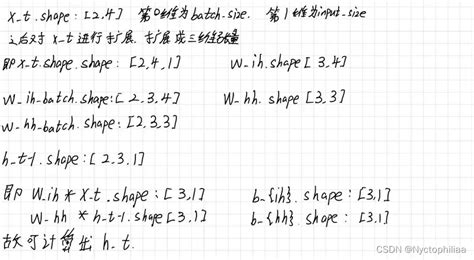 x_t.shape: [2,4] 第0维为batch-size. 第1维为input_size
之后对 x-t 进行扩展. 扩展成三维张量
即x-t.shape.shape: [2,4,1] W_ih.shape[3,4]
W_ih-batch.shape:[2,3,4] W-hh.shape[3,3]
W-hh-batch.shape: [2,3,3]
h_t-1.shape:[2,3,1]
即 W_ih * x-t.shape:[3,1] b-{ih}.shape:[3,1]
W-hh * h-t-1.shape[3,1] b-{hh}.shape:[3,1]
故可计算出 h_t.
CSDN @Nyctophiliaa